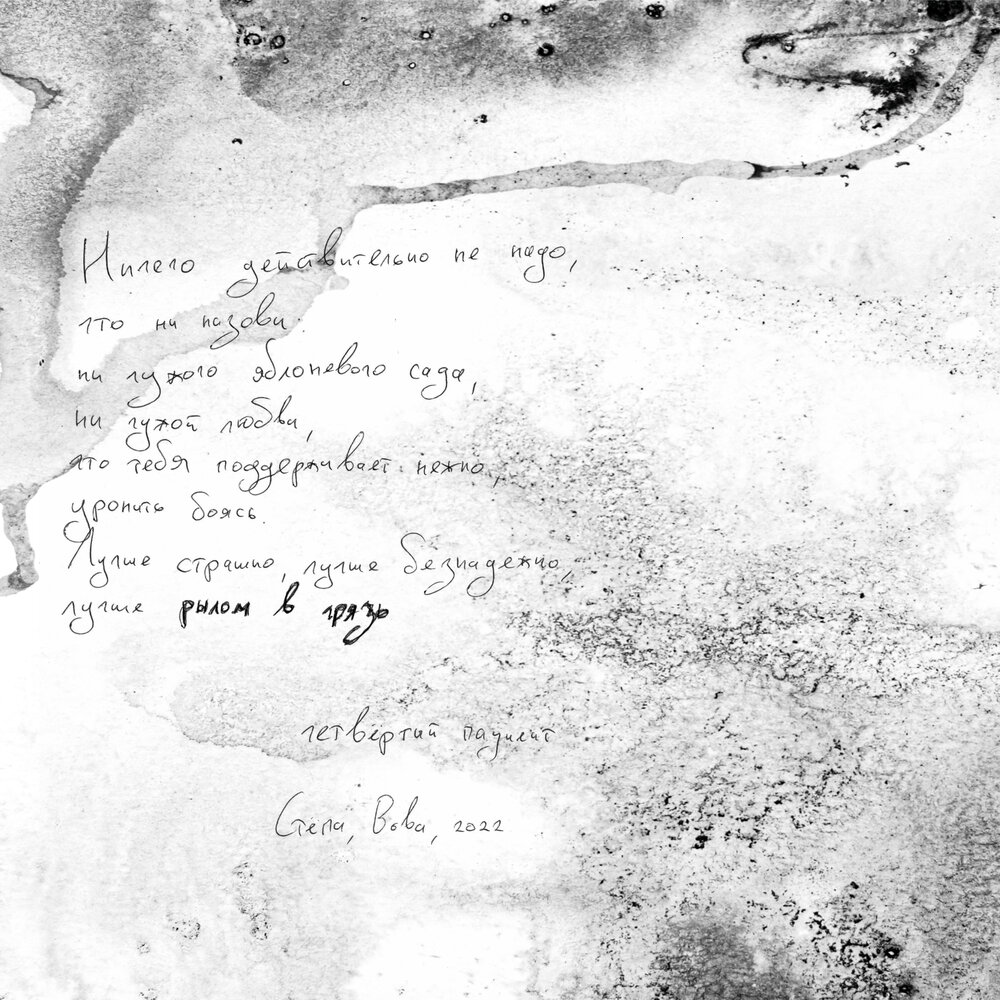 Ничего действительно не надо,
что ни назови:
ни чужого яблоневого сада,
ни чужой любви,
что тебя поддерживает нежно,
уронить боясь.
Лучше страшно, лучше безнадежно,
лучше рылом в грязь
четвёртый
Стёпа, Вова, 2022